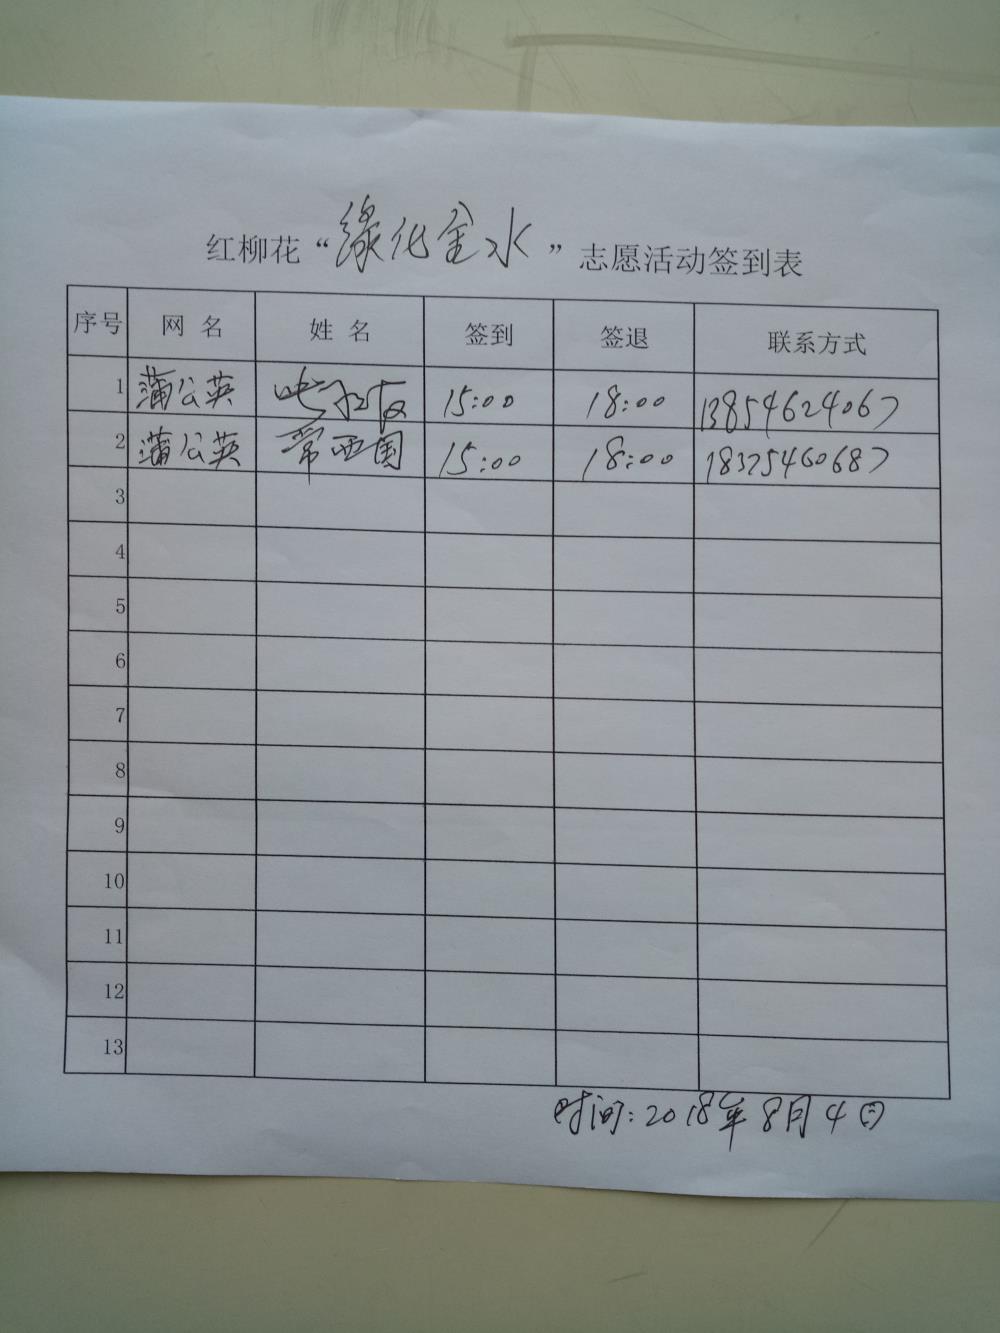 红柳花“缘化金水”志愿活动签到表
序号 网 名 姓 名 签到 签退 联系方式
1 蒲公英 15:00 18:00 13854624067
2 蒲公英 常西国 15:00 18:00 18375460687
3
4
5
6
7
8
9
10
11
12
13
时间:2018年8月4日